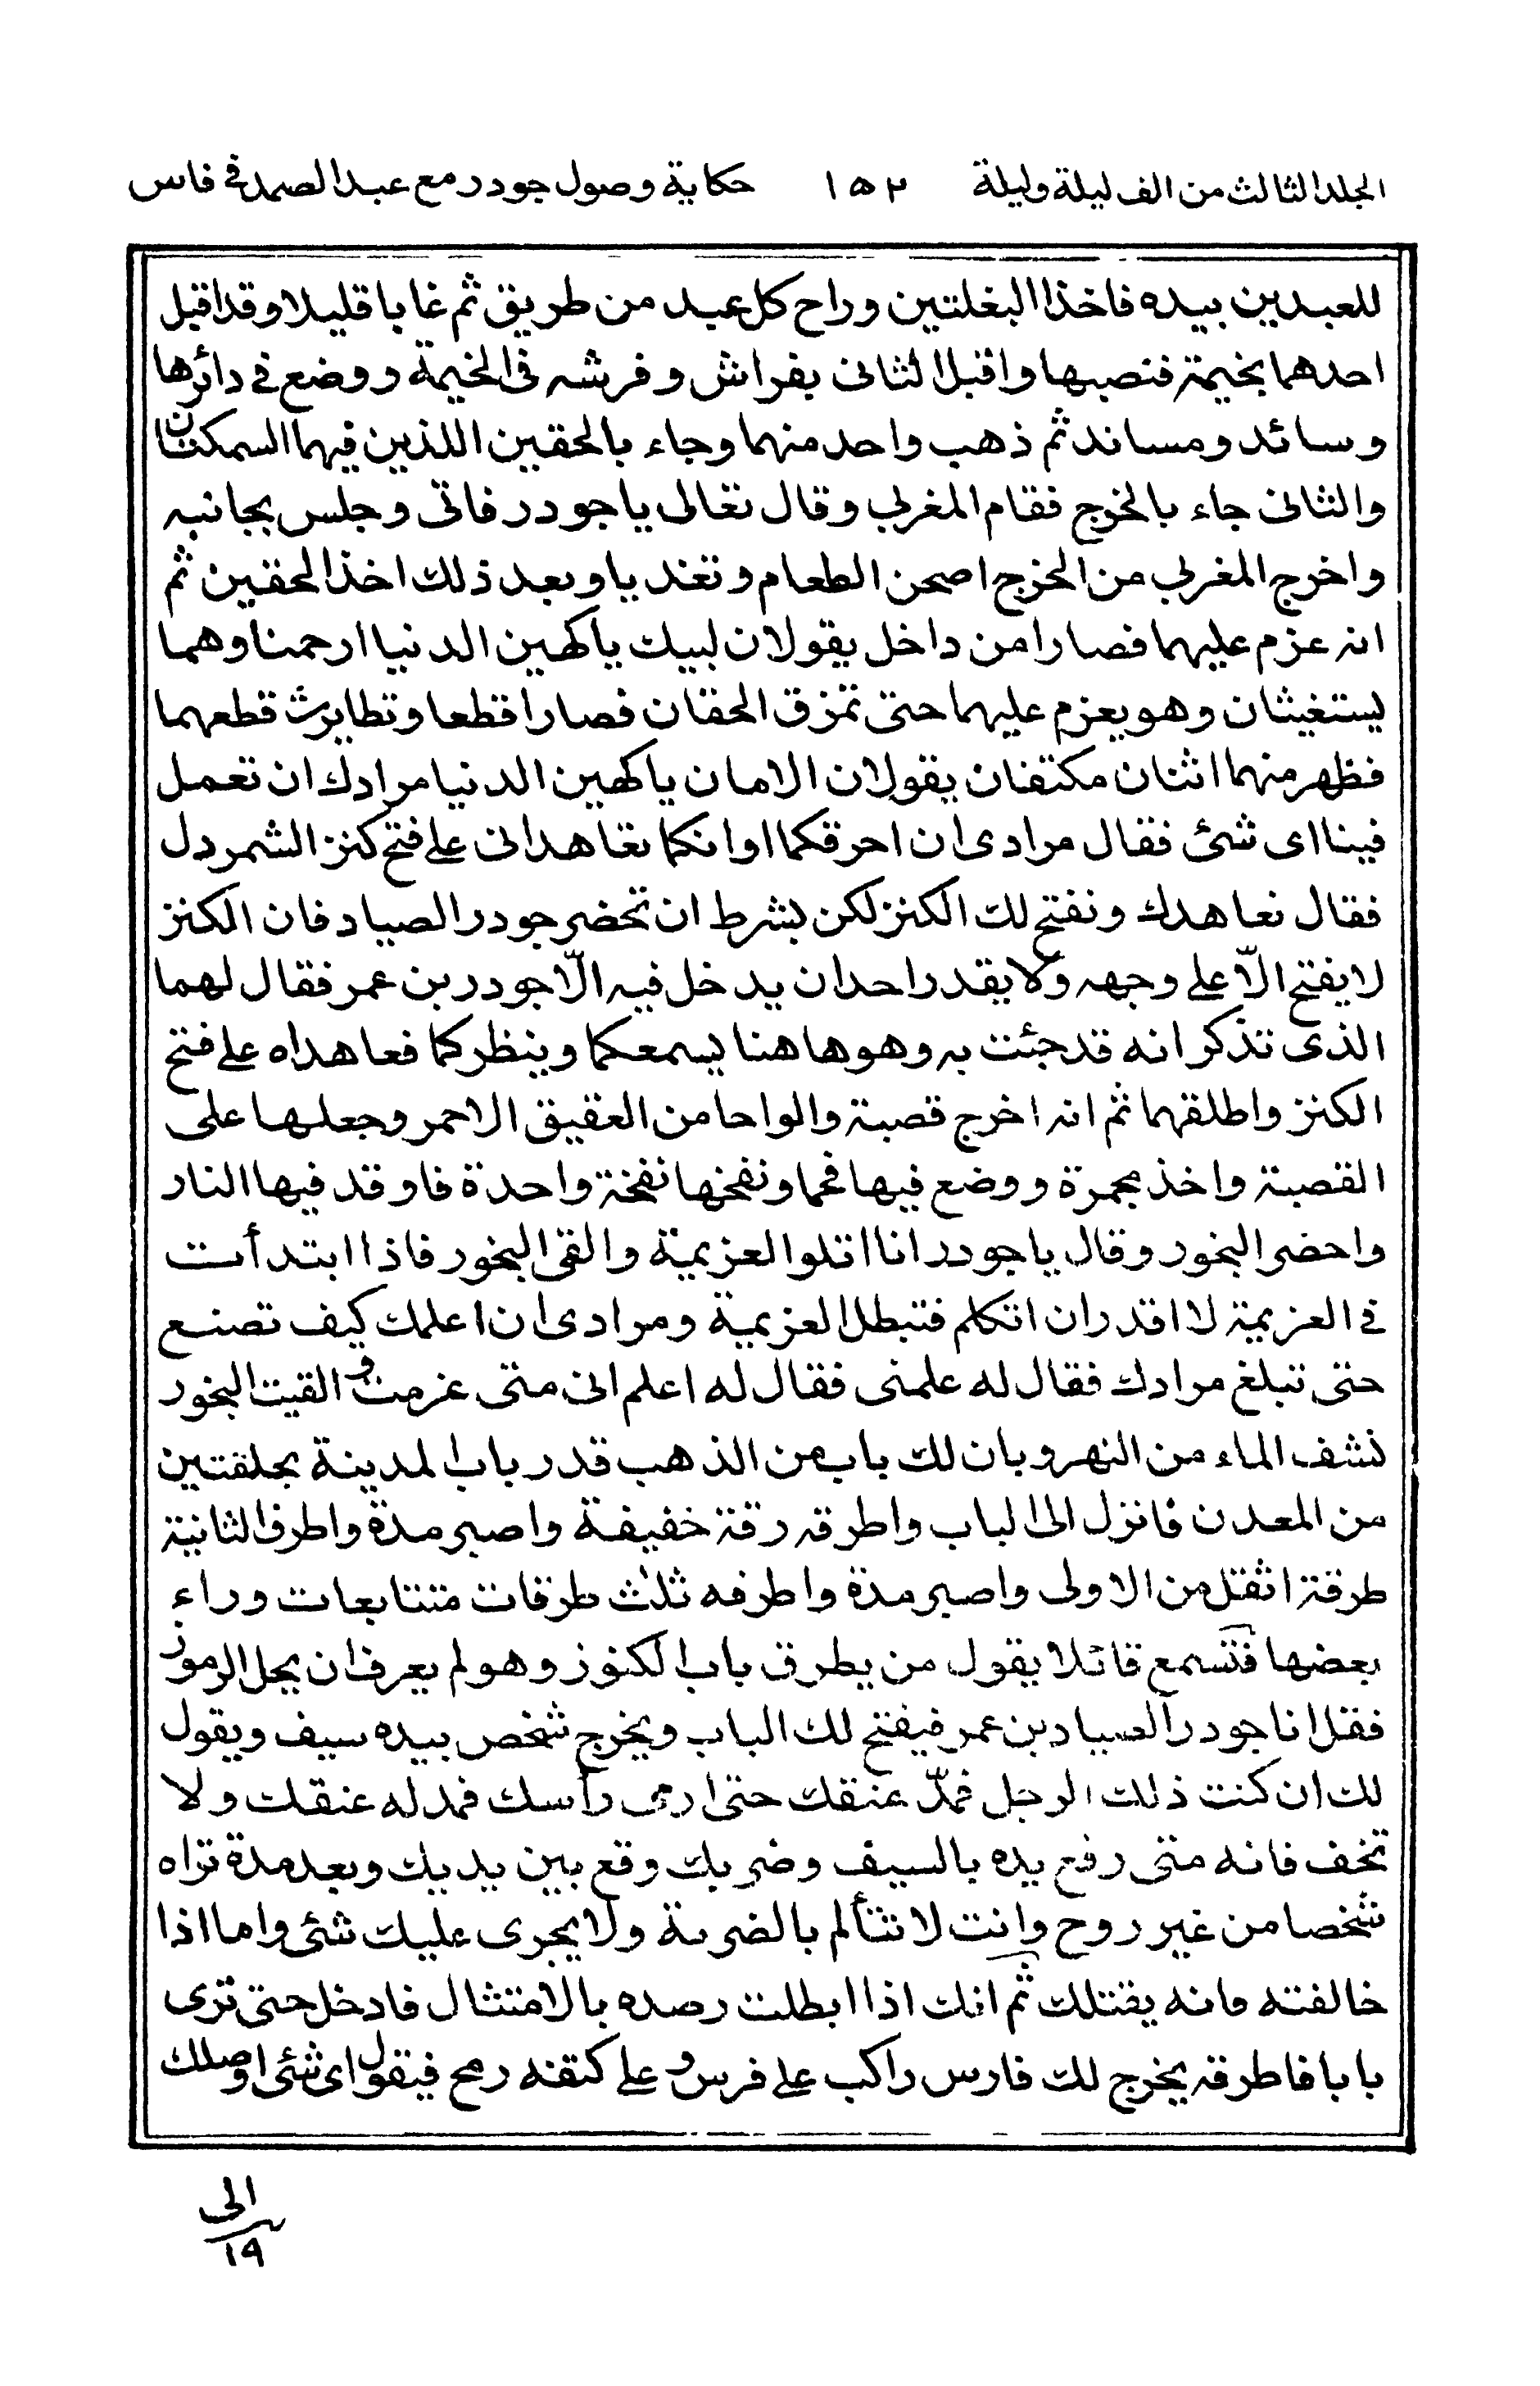 الجلد الثالث من الف ليلة وليلة ١٥٢ حكاية وصول جودر مع عبد الصمد فى فاس
للعبدين بيده فاخذا البغلتين وراح كل عبد من طريق ثم غابا قليلا وقد اقبل
احدهما بخيمة فنصبها واقبل الثانى بفراش وفرشه فى الخيمة ووضع فى دائرها
وسائد ومساند ثم ذهب واحد منهما وجاء بالحقين اللذين فيهما السمكتان
والثانى جاء بالخرج فقام المغربى وقال تعالى يا جودر فاتى وجلس بجانبه
واخرج المغربى من الخرج اصحن الطعام وتغديا وبعد ذلك اخذ الحقين ثم
انه عزم عليهما فصارا من داخل يقولان لبيك يا كهين الدنيا ارحمنا وهما
يستغيثان وهو يعزم عليهما حتى تمزق الحقان فصارا قطعا وتطايرت قطعهما
فظهر منهما اثنان مكتفان يقولان الامان يا كهين الدنيا مرادك ان تعمل
فينا اى شئ فقال مرادى ان احرقكما او انكما تعاهدانى على فتح كنز الشمردل
فقال نعاهدك ونفتح لك الكنز لكن بشرط ان تحضر جودر الصياد فان الكنز
لا يفتح الّا على وجهه ولا يقدر احد ان يدخل فيه الّا جودر بن عمر فقال لهما
الذى تذكرانه قد جئت به وهو هاهنا يسمعكما وينظركما فعاهداه على فتح
الكنز واطلقهما ثم انه اخرج قصبة والواحا من العقيق الاحمر وجعلها على
القصبة واخذ مجمرة ووضع فيها فحما ونفخها نفخة واحدة فاوقد فيها النار
واحضر البخور وقال يا جودر انا اتلوا العزيمة والقى البخور فاذا ابتدأت
فى العزيمة لا اقدر ان اتكلم فتبطل العزيمة ومرادى ان اعلمك كيف تصنع
حتى تبلغ مرادك فقال له علمنى فقال له اعلم انى متى عزمت والقيت البخور
نشف الماء من النهر وبان لك باب من الذهب قدر باب المدينة بحلقتين
من المعدن فانزل الى الباب واطرقه رقة خفيفة واصبر مدة واطرق الثانية
طرقة اثقل من الاولى واصبر مدة واطرقه ثلث طرقات متتابعات وراء
بعضها فتسمع قائلا يقول من يطرق باب الكنوز وهو لم يعرف ان يحل الرموز
فقل انا جودر الصياد بن عمر فيفتح لك الباب ويخرج شخص بيده سيف ويقول
لك ان كنت ذلك الرجل فمدّ عنقك حتى ارمى رأسك فمد له عنقك ولا
تخف فانه متى رفع يده بالسيف وضربك وقع بين يديك وبعد مدة تراه
شخصا من غير روح وانت لا تتألم بالضربة ولا يجرى عليك شئ واما اذا
خالفته فانه يقتلك ثم انك اذا ابطلت رصده بالامتثال فادخل حتى ترى
بابا فاطرقه يخرج لك فارس راكب على فرس وعلى كتفه رمح فيقول اى شئ اوصلك
الى
١٩